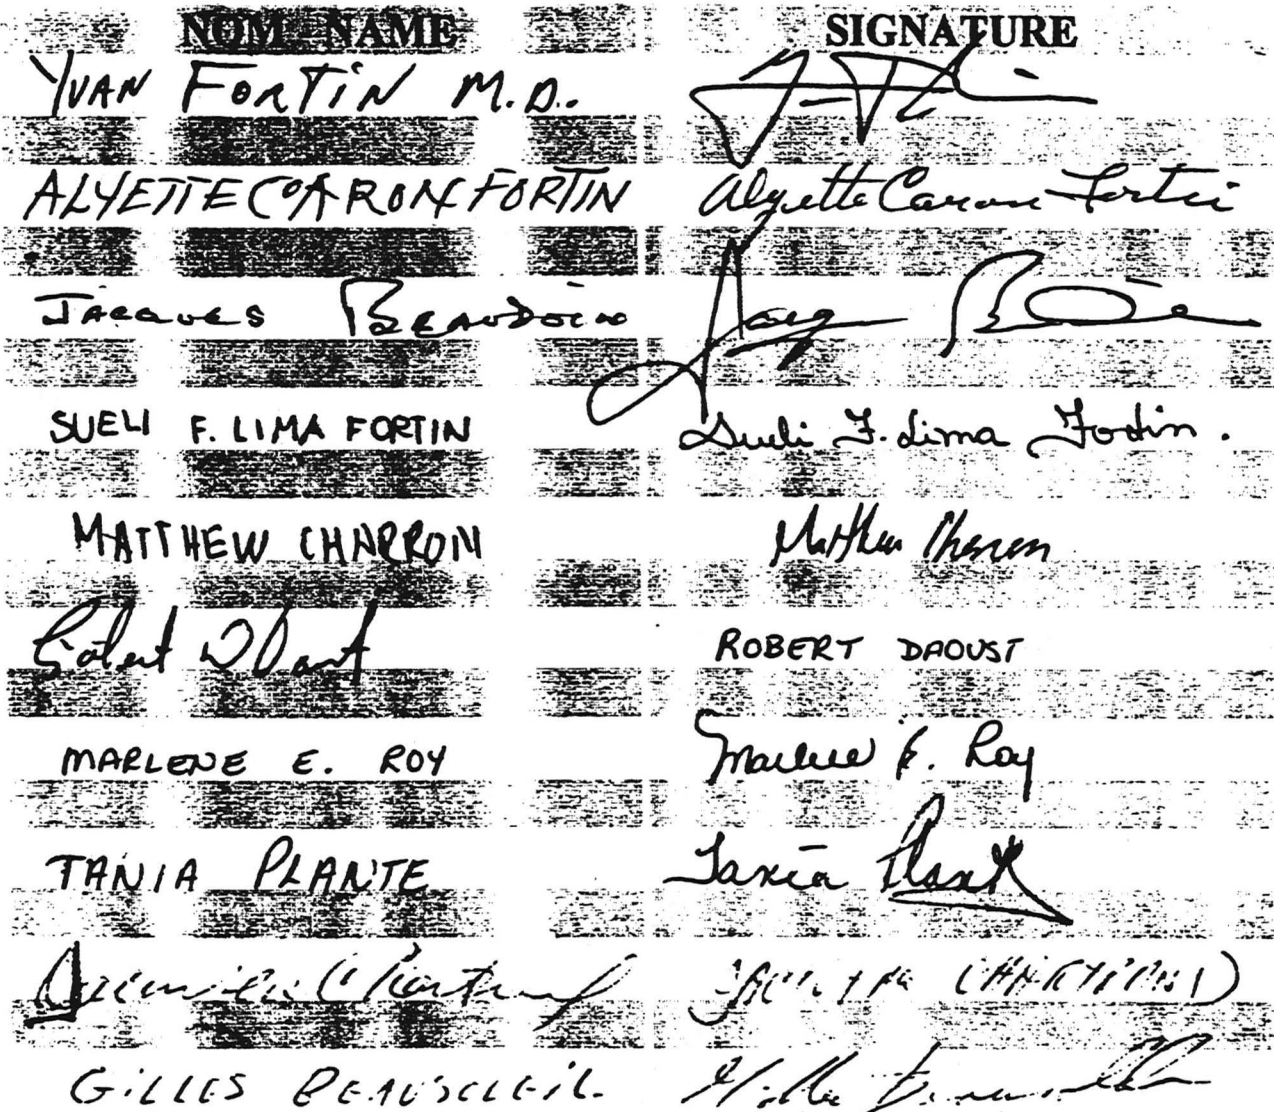 NOM - NAME SIGNATURE
YVAN FORTIN M.D.
ALYETTE CARON FORTIN Alyette Caron Fortin
JACQUES BEAUDOIN
SUELI F. LIMA FORTIN Sueli F. Lima Fortin.
MATTHEW CHARRON Matthew Charron
Robert Daoust ROBERT DAOUST
MARLENE E. ROY Marlene E. Roy
TANIA PLANTE Tania Plante
GILLES BEAUSOLEIL